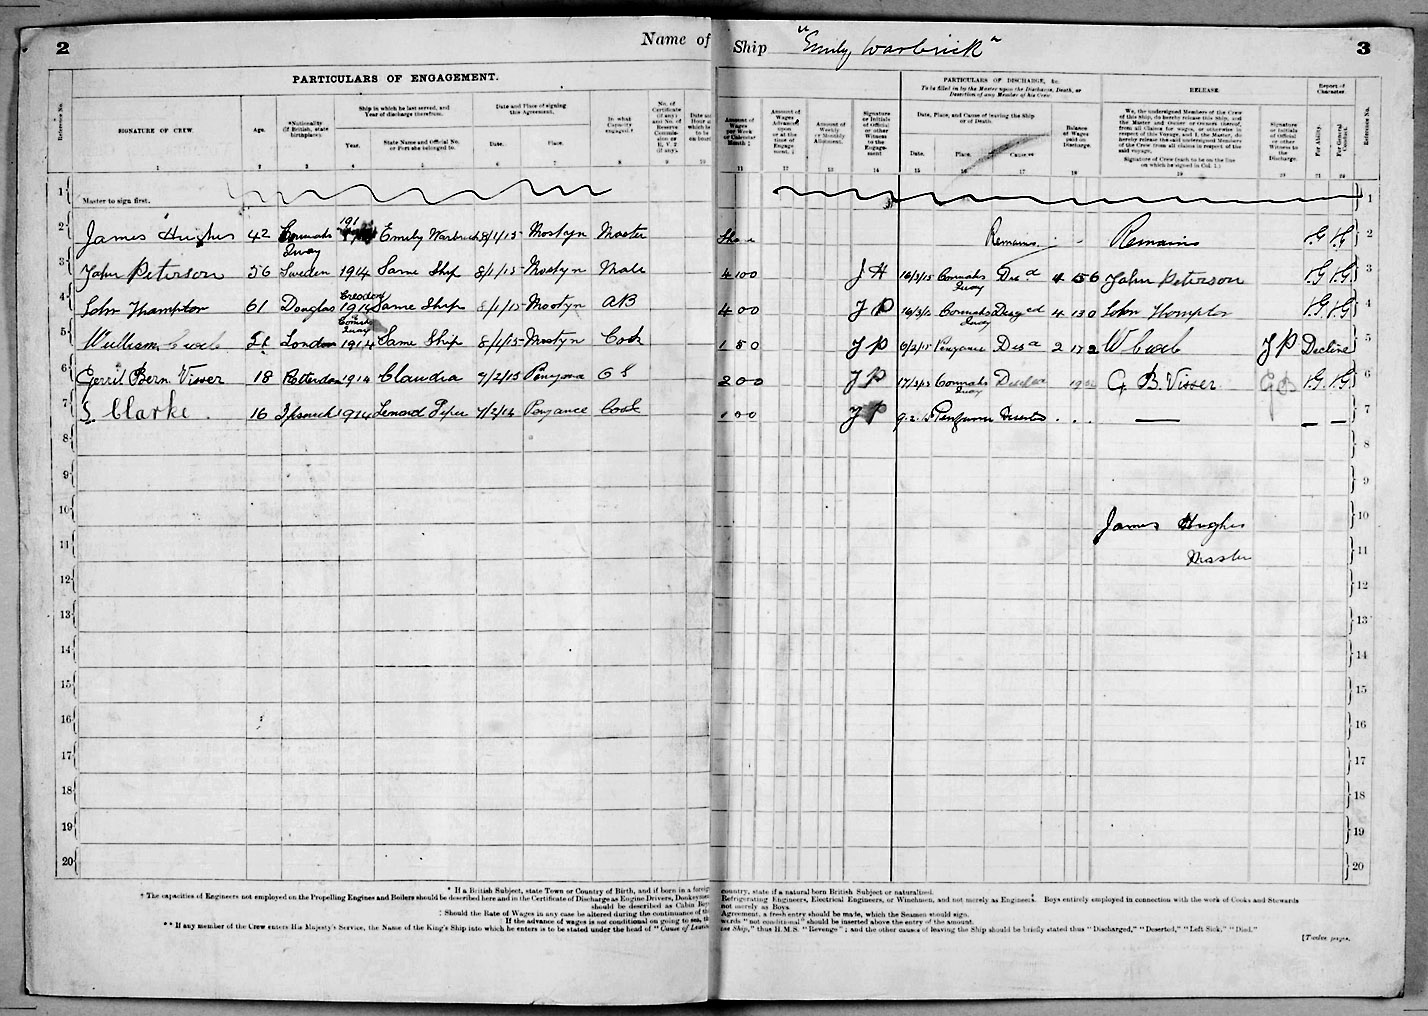 2
Name of Ship "Emily Warbrick"
3
PARTICULARS OF ENGAGEMENT.
PARTICULARS OF DISCHARGE, &c.
To be filled in by the Master upon the Discharge, Death, or
Desertion of any Member of his Crew.
RELEASE.
Report of
Character.
Reference No.
SIGNATURE OF CREW.
Age.
*Nationality
(if British, state
birthplace).
Ship in which he last served, and
Year of discharge therefrom.
Year.
State Name and Official No.
or Port she belonged to.
Date and Place of signing
this Agreement.
Date.
Place.
In what
Capacity
engaged.†
No. of
Certificate
(if any)
and No. of
Reserve
Commis-
sion or
R. V. 2
(if any).
Amount of
Wages
per Week
or Calendar
Month ‡
Amount of
Wages
Advanced
upon
or at the
time of
Engage-
ment.
Amount of
Weekly
or Monthly
Allotment.
Signature
or Initials
of Official
or other
Witness to
the Engage-
ment
Date, Place, and Cause of leaving the Ship
or of Death.
Date.
Place.
Cause
Balance
of Wages
paid on
Discharge.
We, the undersigned Members of the Crew
of this Ship, do hereby release this Ship, and
the Master and Owner or owners thereof,
from all Claims for wages, or otherwise in
respect of this Voyage; and I, the Master, do
hereby release the said undersigned Members
of the Crew from all claims in respect of the
said voyage.
Signature of Crew (each to be on the line
on which he signed in Col. 1.)
Signature
or Initials
of Official
or other
Witness to
the
Discharge.
For Ability.
For General
Conduct.
Reference No.
1 2 3 4 5 6 7 8 9 10 11 12 13 14 15 16 17 18 19 20 21 22
1 Master to sign first. 1
2 James Hughes 42 Connahs Quay 191 Emily Warbrick 8/1/15 Mostyn Master Share Remains Remains V.G V.G 2
3 John Peterson 56 Sweden 1914 Same Ship 8/1/15 Mostyn Mate 4 00 J H 16/3/15 Connahs Quay Disd 4 15 6 John Peterson V.G V.G 3
4 John Thompton 61 Douglas 1914 Same Ship 8/1/15 Mostyn AB 4 00 J P Connahs Quay 4 13 0 John Thompton V.G V.G 4
5 William London 1914 Same Ship 8/1/15 Mostyn Cook 1 5 0 J P Penzance Disd 2 17 2 J P Decline 5
6 Gerrit Bern Visser 18 Rotterdam 1914 Claudia 7/2/15 OS 2 00 J P Connahs Quay G B Visser V.G V.G 6
7 S Clarke 16 Ipswich 1914 Penzance Cook 1 00 J P 9.2.15 Deserted 7
8 8
9 9
10 10
James Hughes
11 11
Master
12 12
13 13
14 14
15 15
16 16
17 17
18 18
19 19
20 20
* If a British Subject, state Town or Country of Birth, and if born in a foreign country, state if a natural born British Subject or naturalized.
† The capacities of Engineers not employed on the Propelling Engines and Boilers should be described here and in the Certificate of Discharge as Engine Drivers, Donkeymen Refrigerating Engineers, Electrical Engineers, or Winchmen, and not merely as Engineers. Boys entirely employed in connection with the work of Cooks and Stewards
should be described as Cabin Boys not merely as Boys.
‡ Should the Rate of Wages in any case be altered during the continuance of the Agreement, a fresh entry should be made, which the Seamen should sign.
If the advance of wages is not conditional on going to sea, the words "not conditional" should be inserted above the entry of the amount.
** If any member of the Crew enters His Majesty's Service, the Name of the King's Ship into which he enters is to be stated under the head of "Cause of Leaving the Ship," thus H.M.S. "Revenge"; and the other causes of leaving the Ship should be briefly stated thus "Discharged," "Deserted," "Left Sick," "Died."
[Twelve pages.